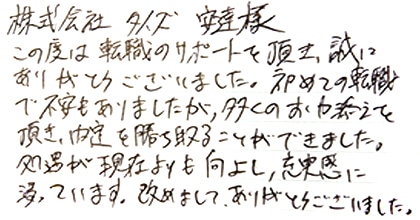 株式会社 タイズ 安達様
この度は転職のサポートを頂き、誠に
ありがとうございました。初めての転職
で不安もありましたが、多くのお力添えを
頂き、内定を勝ち取ることができました。
処遇が現在よりも向上し、充実感に
浸っています。改めまして、ありがとうございました。